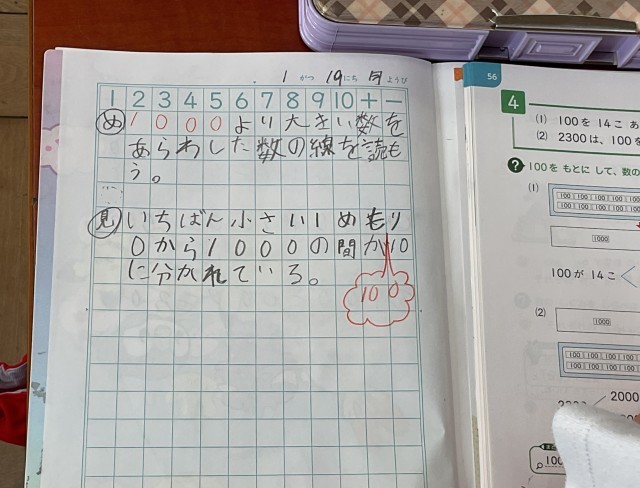 1 がつ 19 にち 月 ようび
1 2 3 4 5 6 7 8 9 10 + −
め 1000より大きい数を
あらわした数の線を読も
う。
見 いちばん小さい1めもり
0から1000の間が10
に分かれている。
100
56
4
(1) 100を14こ あ
(2) 2300は、100を
? 100を もとに して、数の
(1)
100 100 100 100 100
100 100 100 100 100
1000
100が 14こ
(2)
1000
100 100 100 100 100
100 100 100 100 100
2000
100